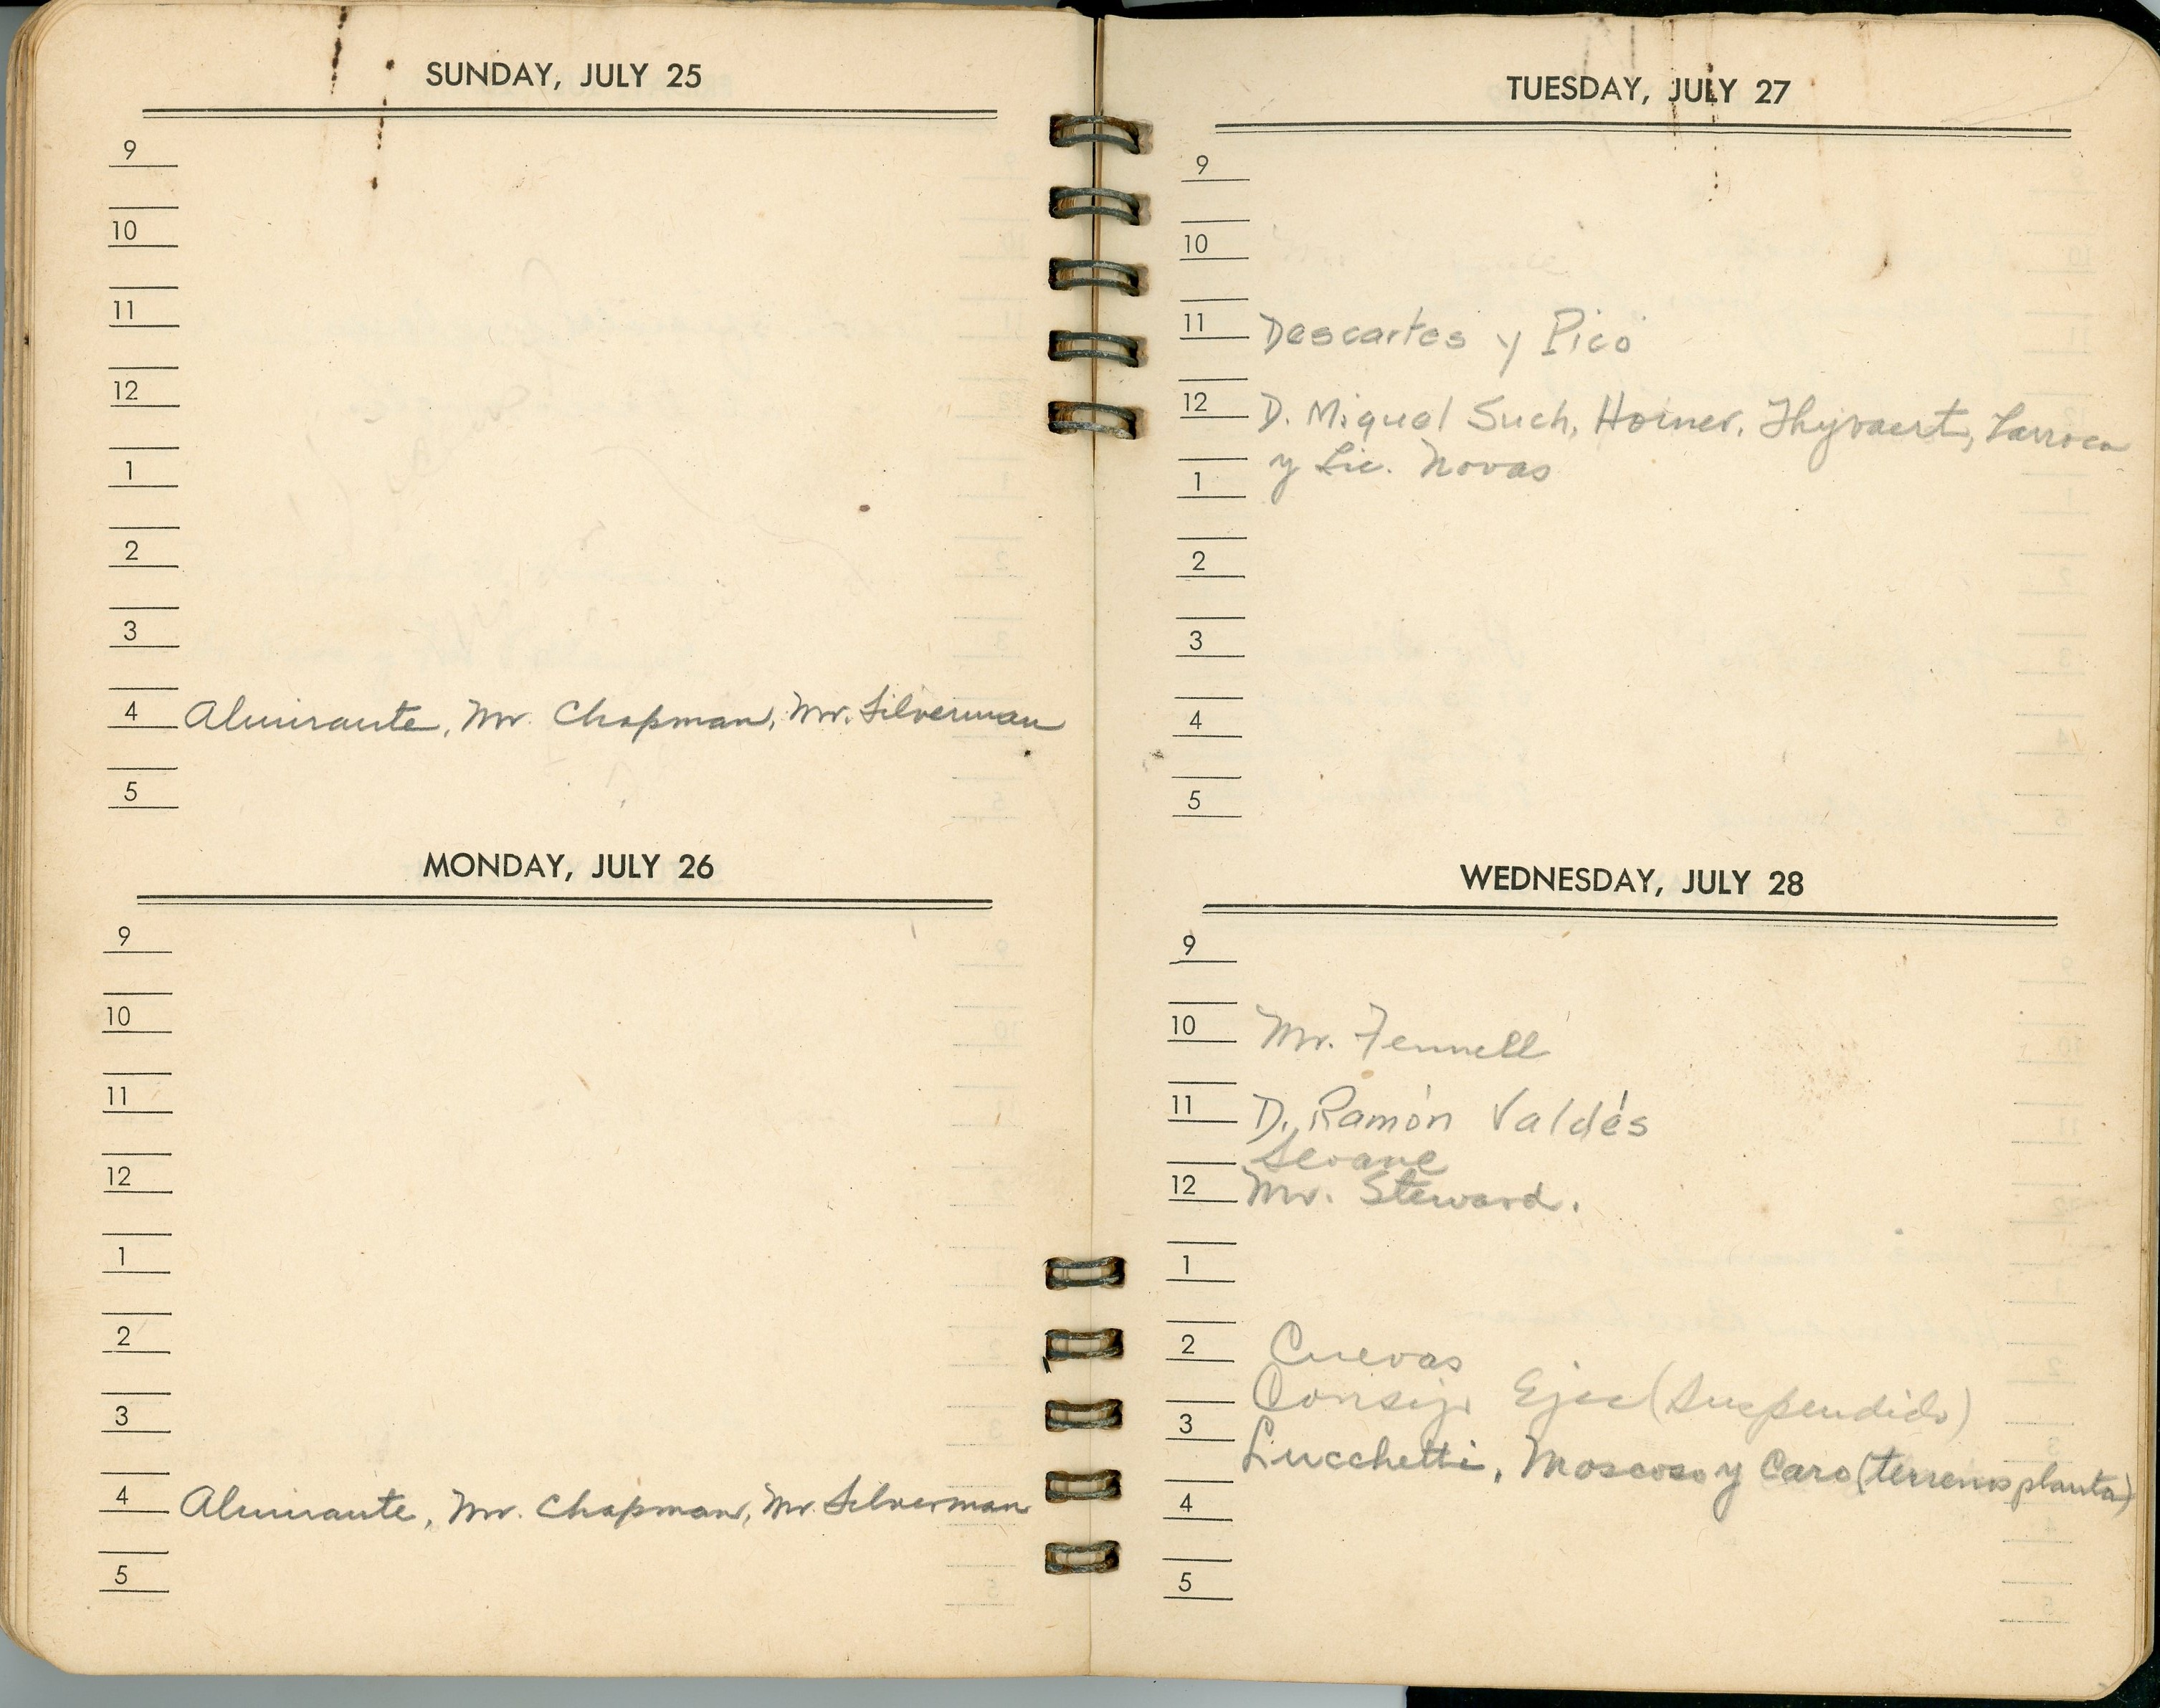 SUNDAY, JULY 25
9
10
11
12
1
2
3
4 Almirante, Mr. Chapman, Mr. Silverman
5
MONDAY, JULY 26
9
10
11
12
1
2
3
4 Almirante, Mr. Chapman, Mr. Silverman
5
TUESDAY, JULY 27
9
10
11 Descartes y Picó
12 D. Miguel Such, Horner, Thyvaert, Larroca
y Lic. Novas
1
2
3
4
5
WEDNESDAY, JULY 28
9
10 Mr. Fennell
11 D. Ramón Valdés
Seoane
12 Mr. Steward.
1
2 Cuevas
Consejo Ejec (Suspendido)
3
Lucchetti, Moscoso y Caro (terrenos planta)
4
5